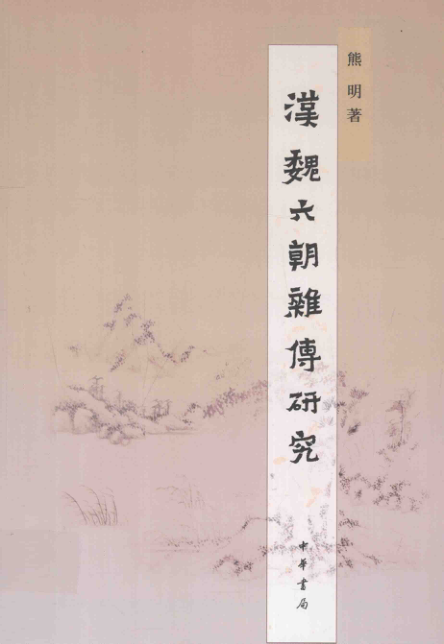 熊明著
漢魏六朝雜傳研究
中華書局